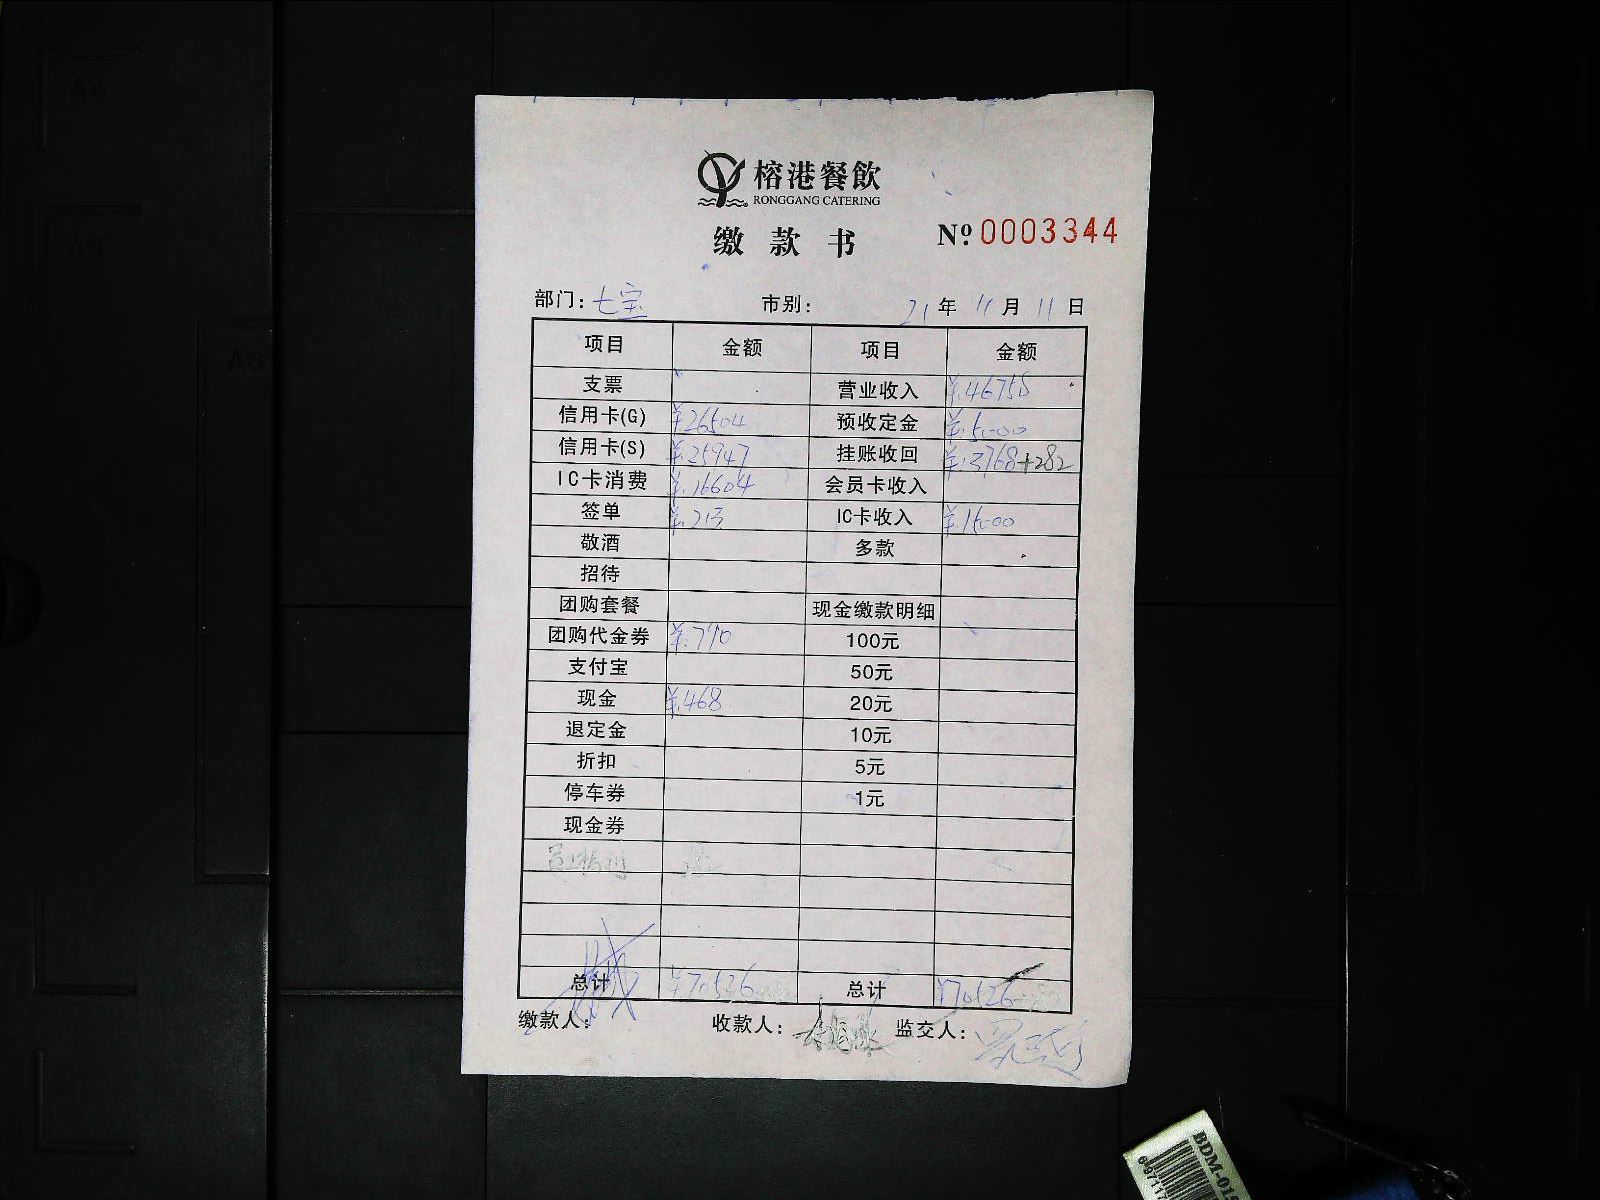 榕港餐飲
RONGGANG CATERING
缴款书
№ 0003344
部门: 七宝 市别: 21 年 11 月 11 日
项目 金额 项目 金额
支票 营业收入 ¥.46758
信用卡(G) ¥.26504 预收定金 ¥.5000
信用卡(S) ¥.25947 挂账收回 ¥.3768+282
IC卡消费 ¥.16604 会员卡收入
签单 ¥.213 IC卡收入 ¥.15000
敬酒 多款
招待
团购套餐 现金缴款明细
团购代金券 ¥.790 100元
支付宝 50元
现金 ¥.468 20元
退定金 10元
折扣 5元
停车券 1元
现金券
总计 ¥70526 总计 ¥70526
缴款人: 收款人: 监交人:
BDM-01